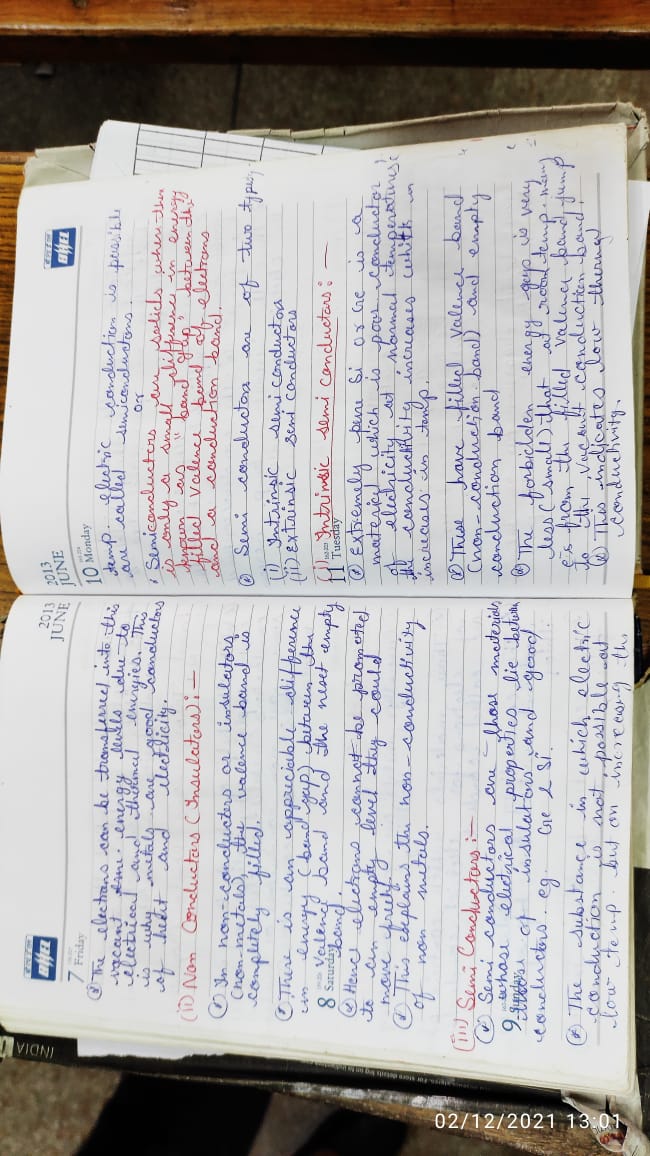 2013
JUNE
7 Friday
The electrons can be transferred into this
vacant ... energy levels due to
electrical and thermal energies. This
is why metals are good conductors
of heat and electricity.
(ii) Non Conductors (Insulators):-
In non-conductors or insulators,
(non-metals), the valence band is
completely filled.
There is an appreciable difference
in energy (band gap) between the
8 Saturday
valence band and the next empty
band.
Hence electrons cannot be promoted
to an empty level they could
move freely
This explains the non-conductivity
of non metals.
(iii) Semi Conductors:-
Semi conductors are those materials
whose electrical properties lie between
9 Sunday
those of insulators and good
conductors. eg Ge & Si.
The substance in which electric
conduction is not possible at
low temp. but on increasing the
2013
JUNE
10 Monday
temp. electric conduction is possible
are called semiconductors.
or
Semiconductors are solids where there
is only a small difference in energy
known as "band gap" between the
filled valence band of electrons
and a conduction band.
Semi conductors are of two types,
(i) Intrinsic semi conductors
(ii) Extrinsic semi conductors
(i) Intrinsic semi conductors:-
11 Tuesday
Extremely pure Si or Ge is a
material which is poor conductor
of electricity at normal temperature
the conductivity increases with
increases in temp.
These have filled valence band
(non-conduction band) and empty
conduction band
The forbidden energy gap is very
less (small) that at room temp. many
e-s from the filled valence band jump
to the vacant conduction band.
This indicates low thermal
conductivity.
INDIA
02/12/2021 13:01